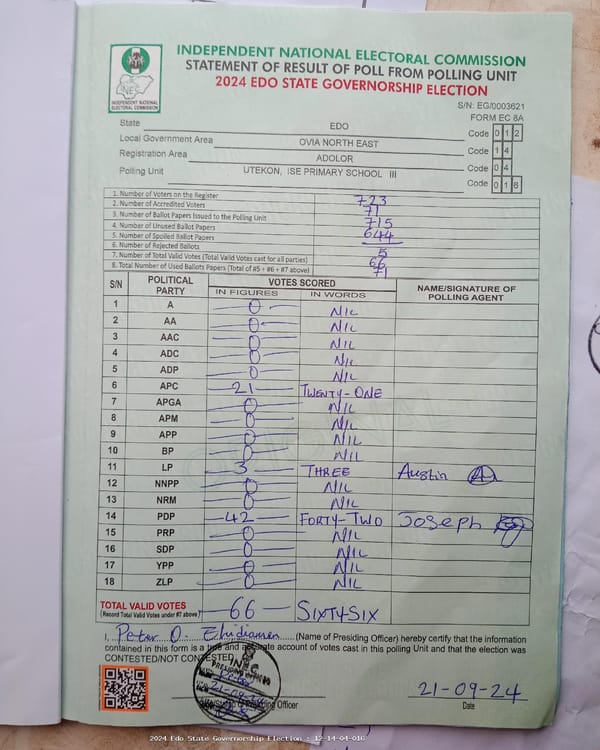 INDEPENDENT NATIONAL ELECTORAL COMMISSION
STATEMENT OF RESULT OF POLL FROM POLLING UNIT
2024 EDO STATE GOVERNORSHIP ELECTION
INEC
INDEPENDENT NATIONAL
ELECTORAL COMMISSION
S/N: EG/0003621
FORM EC 8A
State EDO Code 0 1 2
Local Government Area OVIA NORTH EAST Code 1 4
Registration Area ADOLOR Code 0 4
Polling Unit UTEKON, ISE PRIMARY SCHOOL III Code 0 1 6
1. Number of Voters on the Register 723
2. Number of Accredited Voters 71
3. Number of Ballot Papers Issued to the Polling Unit 715
4. Number of Unused Ballot Papers 644
5. Number of Spoiled Ballot Papers —
6. Number of Rejected Ballots 5
7. Number of Total Valid Votes (Total Valid Votes cast for all parties) 66
8. Total Number of Used Ballots Papers (Total of #5 + #6 + #7 above) 71
S/N POLITICAL PARTY VOTES SCORED NAME/SIGNATURE OF POLLING AGENT
IN FIGURES IN WORDS
1 A 0 NIL
2 AA 0 NIL
3 AAC 0 NIL
4 ADC 0 NIL
5 ADP 0 NIL
6 APC 21 TWENTY-ONE
7 APGA 0 NIL
8 APM 0 NIL
9 APP 0 NIL
10 BP 0 NIL
11 LP 3 THREE Austin
12 NNPP 0 NIL
13 NRM 0 NIL
14 PDP 42 FORTY-TWO Joseph
15 PRP 0 NIL
16 SDP 0 NIL
17 YPP 0 NIL
18 ZLP 0 NIL
TOTAL VALID VOTES 66 SIXTYSIX
(Record Total Valid Votes under #7 above)
I, Peter O. Ehidiamen (Name of Presiding Officer) hereby certify that the information
contained in this form is a true and accurate account of votes cast in this polling Unit and that the election was
CONTESTED/NOT CONTESTED
INEC
21-09-24
Officer Date
2024 Edo State Governorship Election : 12-14-04-016